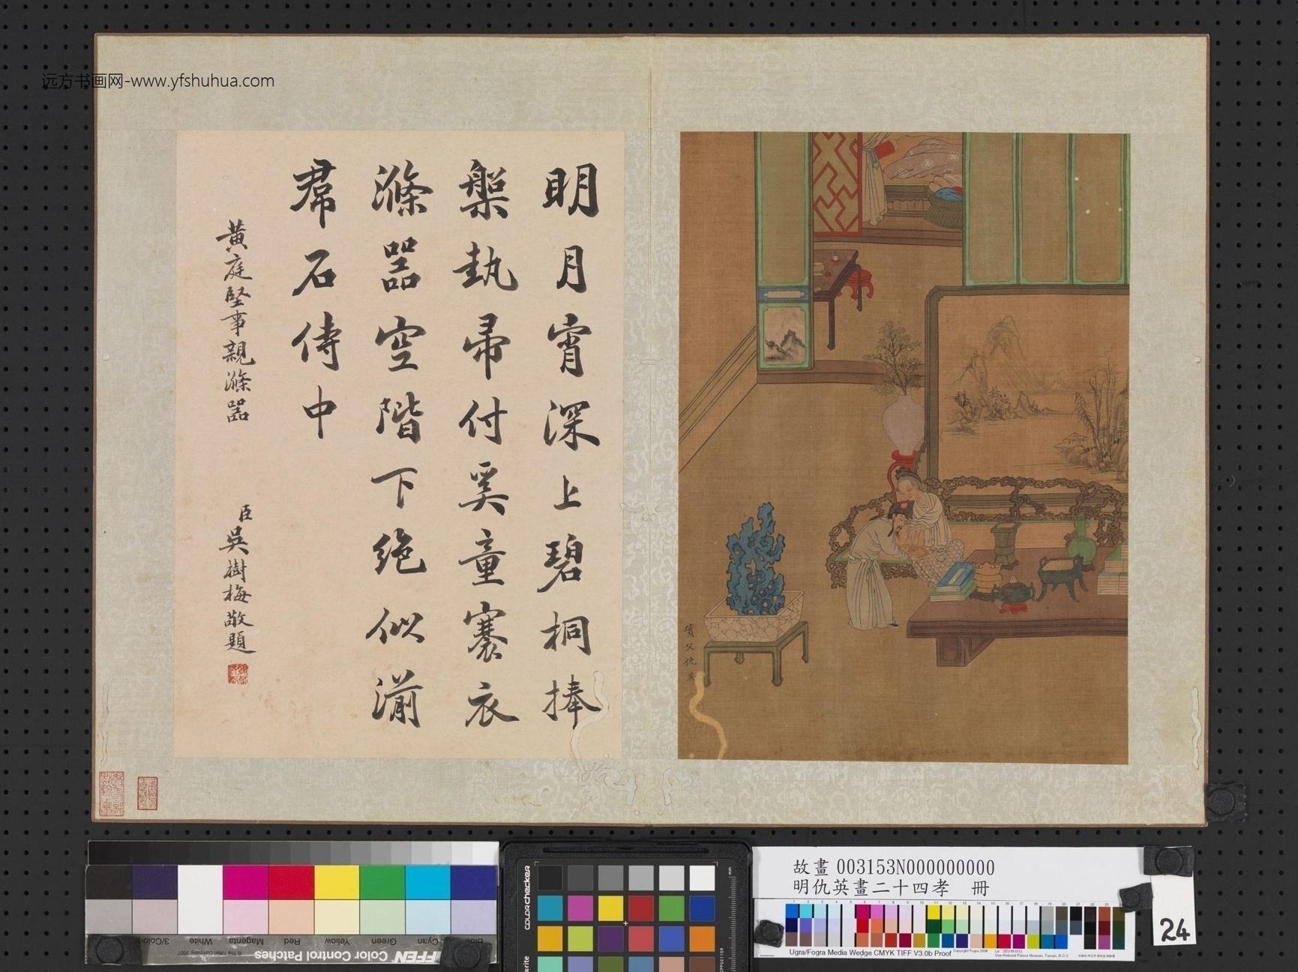 远方书画网-www.yfshuhua.com
明月宵深上碧桐捧
槃執帚付奚童褰衣
滌器空階下絶似湔
帬石侍中
黃庭堅事親滌器
臣吳樹梅敬題
實父仇
故畫 003153N000000000
明仇英畫二十四孝 冊
24
colorchecker
3/Color
White
Magenta
Red
Yellow
Green
Cyan
Blue
FFEN Color Control Patches
Ugra/Fogra Media Wedge CMYK TIFF V3.0b Proof